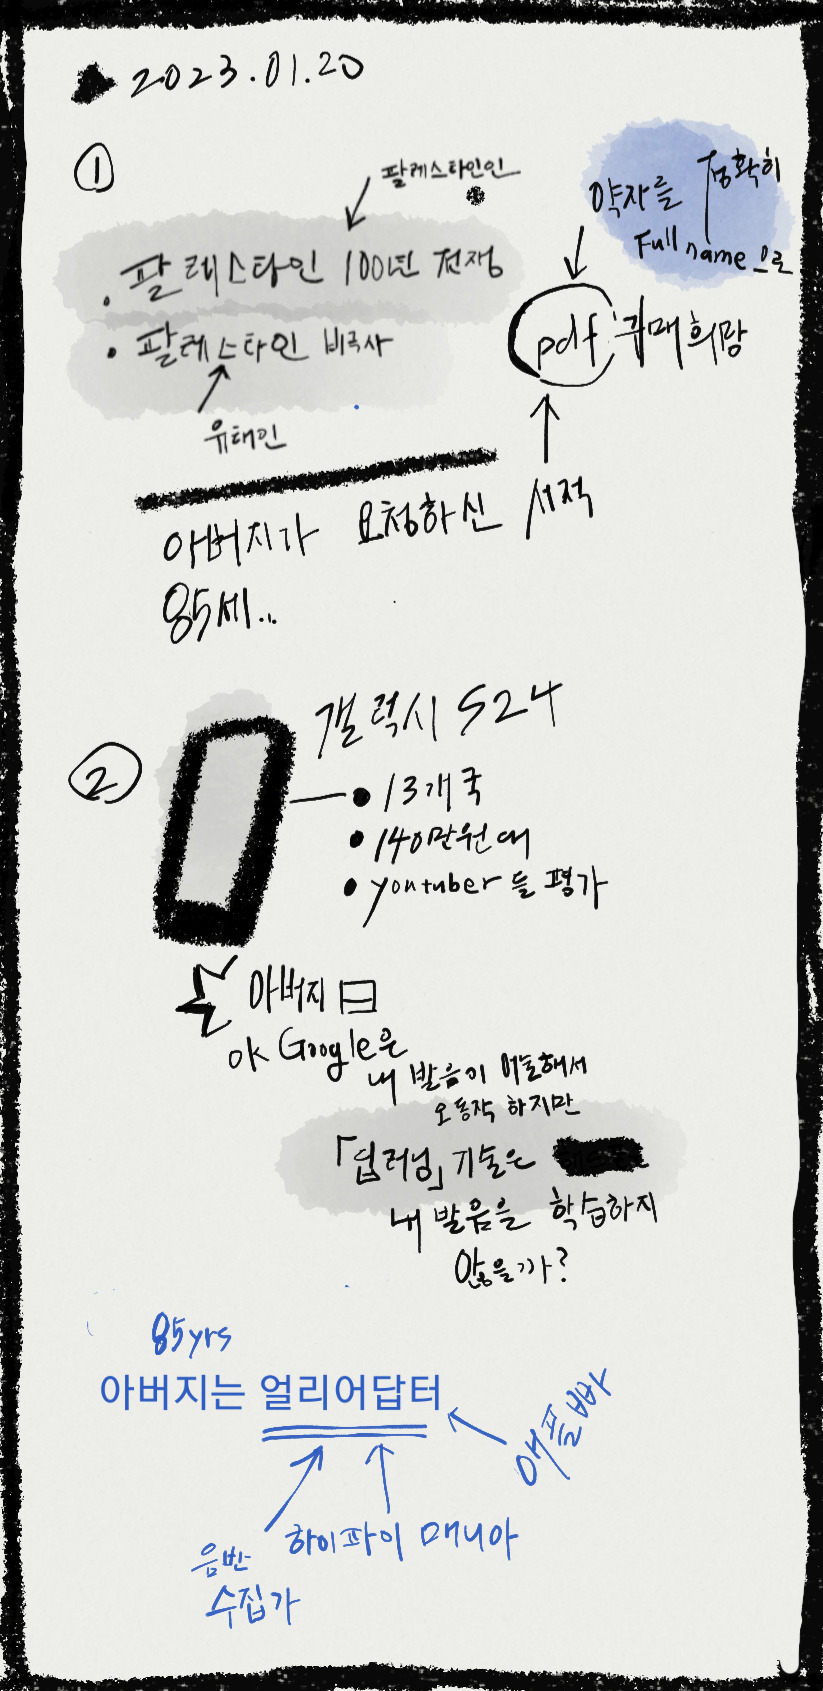 2023.01.20
①
팔레스타인인
약자를 정확히
Full name으로
· 팔레스타인 100년 전쟁
· 팔레스타인 비극사
pdf 구매희망
유태인
아버지가 요청하신 서적
85세..
②
갤럭시 S24
• 13개국
• 140만원대
• youtuber들 평가
아버지 曰
OK Google은
내 발음이 어눌해서
오동작 하지만
「딥러닝」 기술은
내 발음을 학습하지
않을까?
85yrs
아버지는 얼리어답터
애플빠
하이파이 매니아
음반
수집가